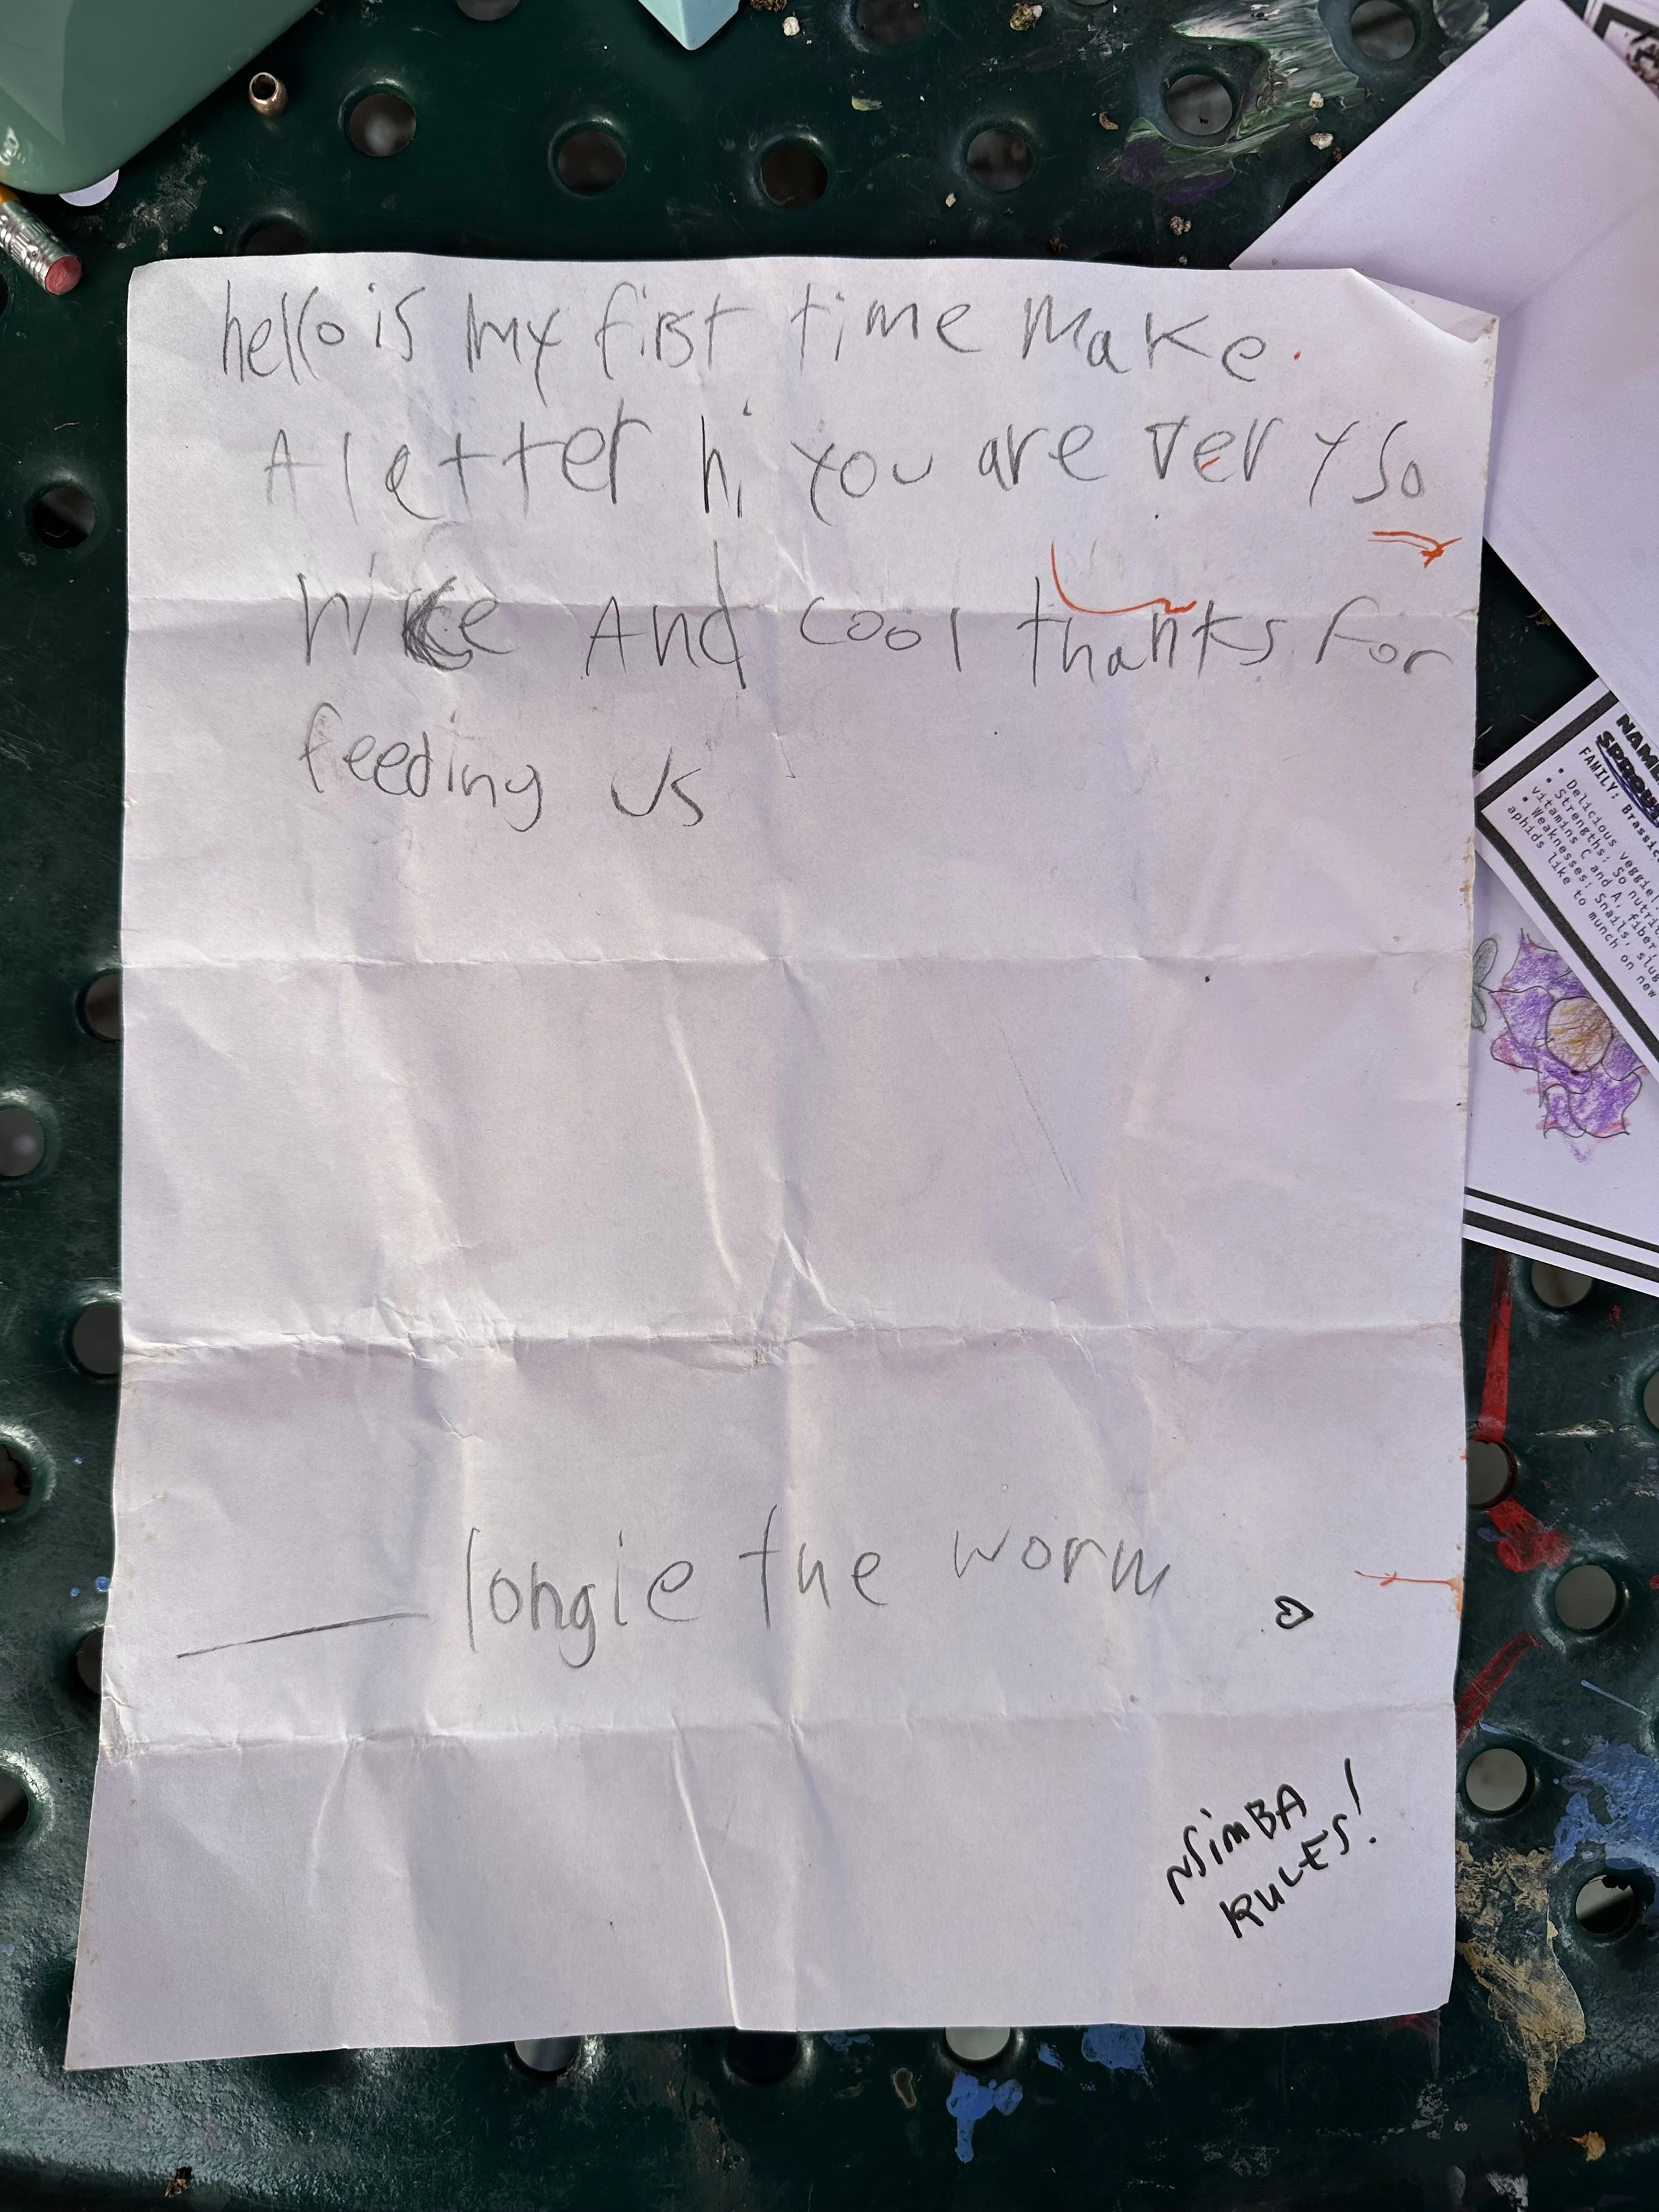 hello is my first time make
A letter hi you are very so
nice And cool thanks for
feeding us
longie the worm
NSimBA
RULES!
NAME
SPROU
FAMILY: Brassic
• Delicious veggie!
• Strengths: So nutri
vitamins C and A, fiber,
• Weaknesses: Snails, slug
aphids like to munch on new